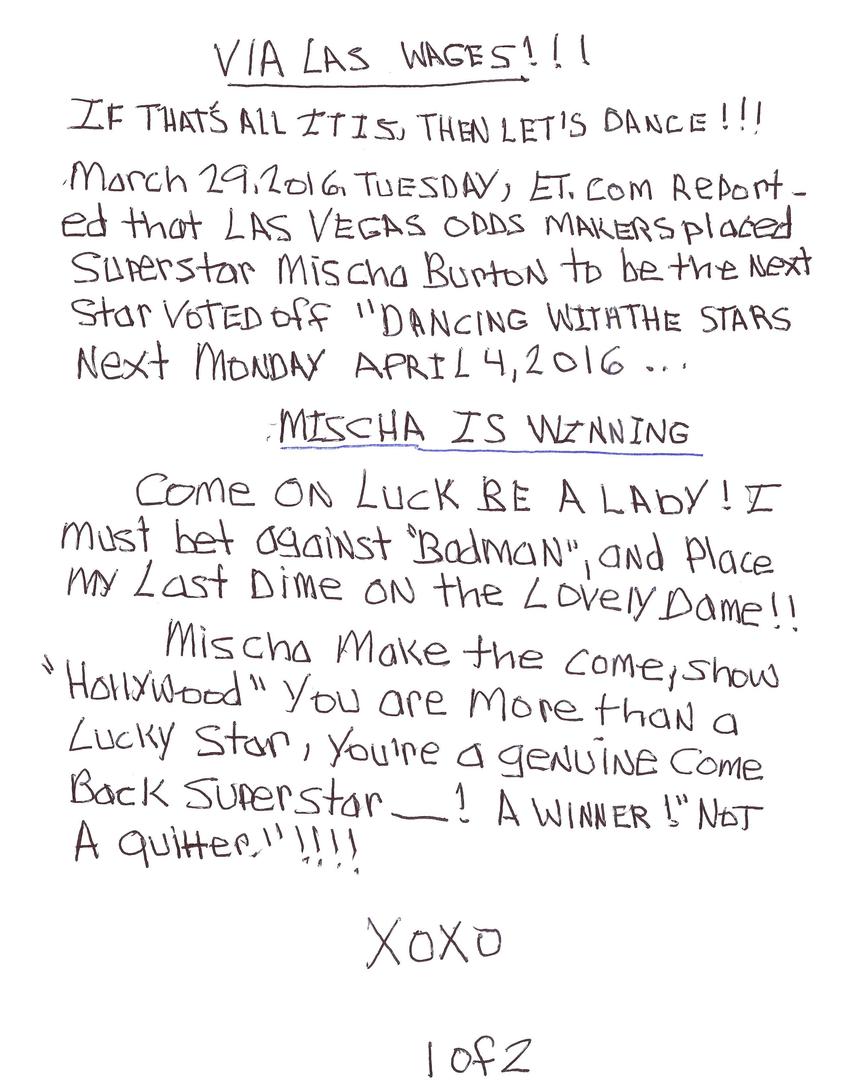 VIA LAS WAGES!!!
IF THAT'S ALL IT IS, THEN LET'S DANCE!!!
March 29, 2016, TUESDAY, ET.com Report-
ed that LAS VEGAS ODDS MAKERS placed
Superstar Mischa Burton to be the Next
Star VOTED off "DANCING WITH THE STARS
Next MONDAY APRIL 4, 2016 ...
MISCHA IS WINNING
Come ON LUCK BE A LADY! I
must bet against "BadmaN", aNd Place
my Last Dime ON the Lovely Dame!!
Mischa Make the come, show
"Hollywood" you are more than a
Lucky Star, you're a geNUINE Come
Back Superstar __! A WINNER!" NOT
A quitter."!!!!
XOXO
1 of 2